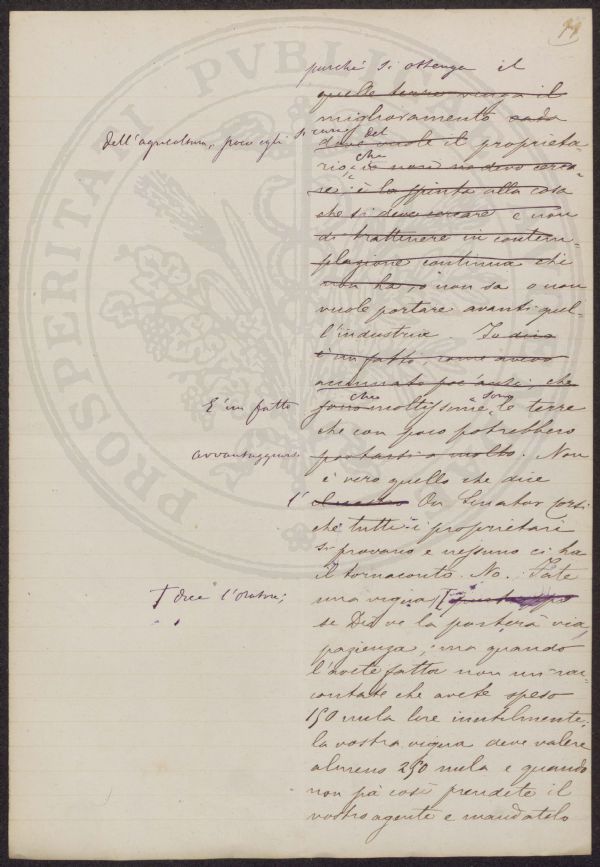 99
purché si ottenga il
quello venga il
miglioramento
dell'agricoltura, poco egli si curi del
deve vuole il proprieta
rio, che io non devo cerca=
re: è la spinta alla cosa
che si deve cercare e non
di trattenere in contem=
plazione continua chi
non ha, o non sa o non
vuole portare avanti quel=
l'industria. Io dico
è un fatto come aveva
accennato poc'anzi, che
È un fatto che sono moltissime le terre
che con poco potrebbero
avvantaggiarsi
portarsi a molto. Non
è vero quello che dice
l' On. Senator Corsi
che tutti i proprietari
si provano e nessuno ci ha
il tornaconto. No. Fate
dice l'Oratore;
una vigna
se Dio ve la porterà via,
pazienza, ma quando
l'avete fatta non mi rac=
contate che avete speso
150 mila lire inutilmente;
la vostra vigna deve valere
almeno 250 mila e quando
non fa così prendete il
vostro agente e mandatelo
PROSPERITATI PVBLICAE